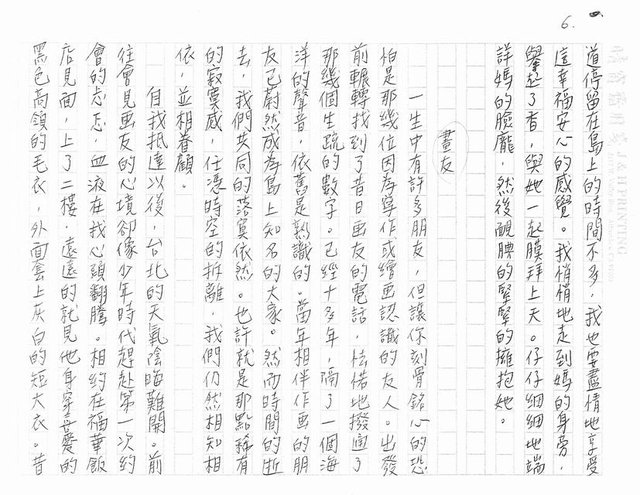 6.
道停留在島上的時間不多，我也要盡情地享受
這幸福安心的感覺。我悄悄地走到媽的身旁，
舉起了香，與她一起膜拜上天。仔仔細細地端
詳媽的臉龐，然後靦腆的緊緊的擁抱她。
畫友
一生中有許多朋友，但讓你刻骨銘心的恐
怕是那幾位因為寫作或繪畫認識的友人。出發
前輾轉找到了昔日畫友的電話，怯怯地撥通了
那幾個生疏的數字。已經十多年，隔了一個海
洋的聲音，依舊是熟識的。當年相伴作畫的朋
友已蔚然成為島上知名的大家。然而時間的逝
去，我們共同的落寞依然。也許就是那點稀有
的寂寞感，任憑時空的拆離，我們仍然相知相
依，並相眷顧。
自我抵達以後，台北的天氣陰晦難開。前
往會見畫友的心境卻像少年時代趕赴第一次約
會的忐忑，血液在我心頭翻騰。相約在福華飯
店見面，上了二樓，遠遠的就見他身穿喜愛的
黑色高領的毛衣，外面套上灰白的短大衣。昔